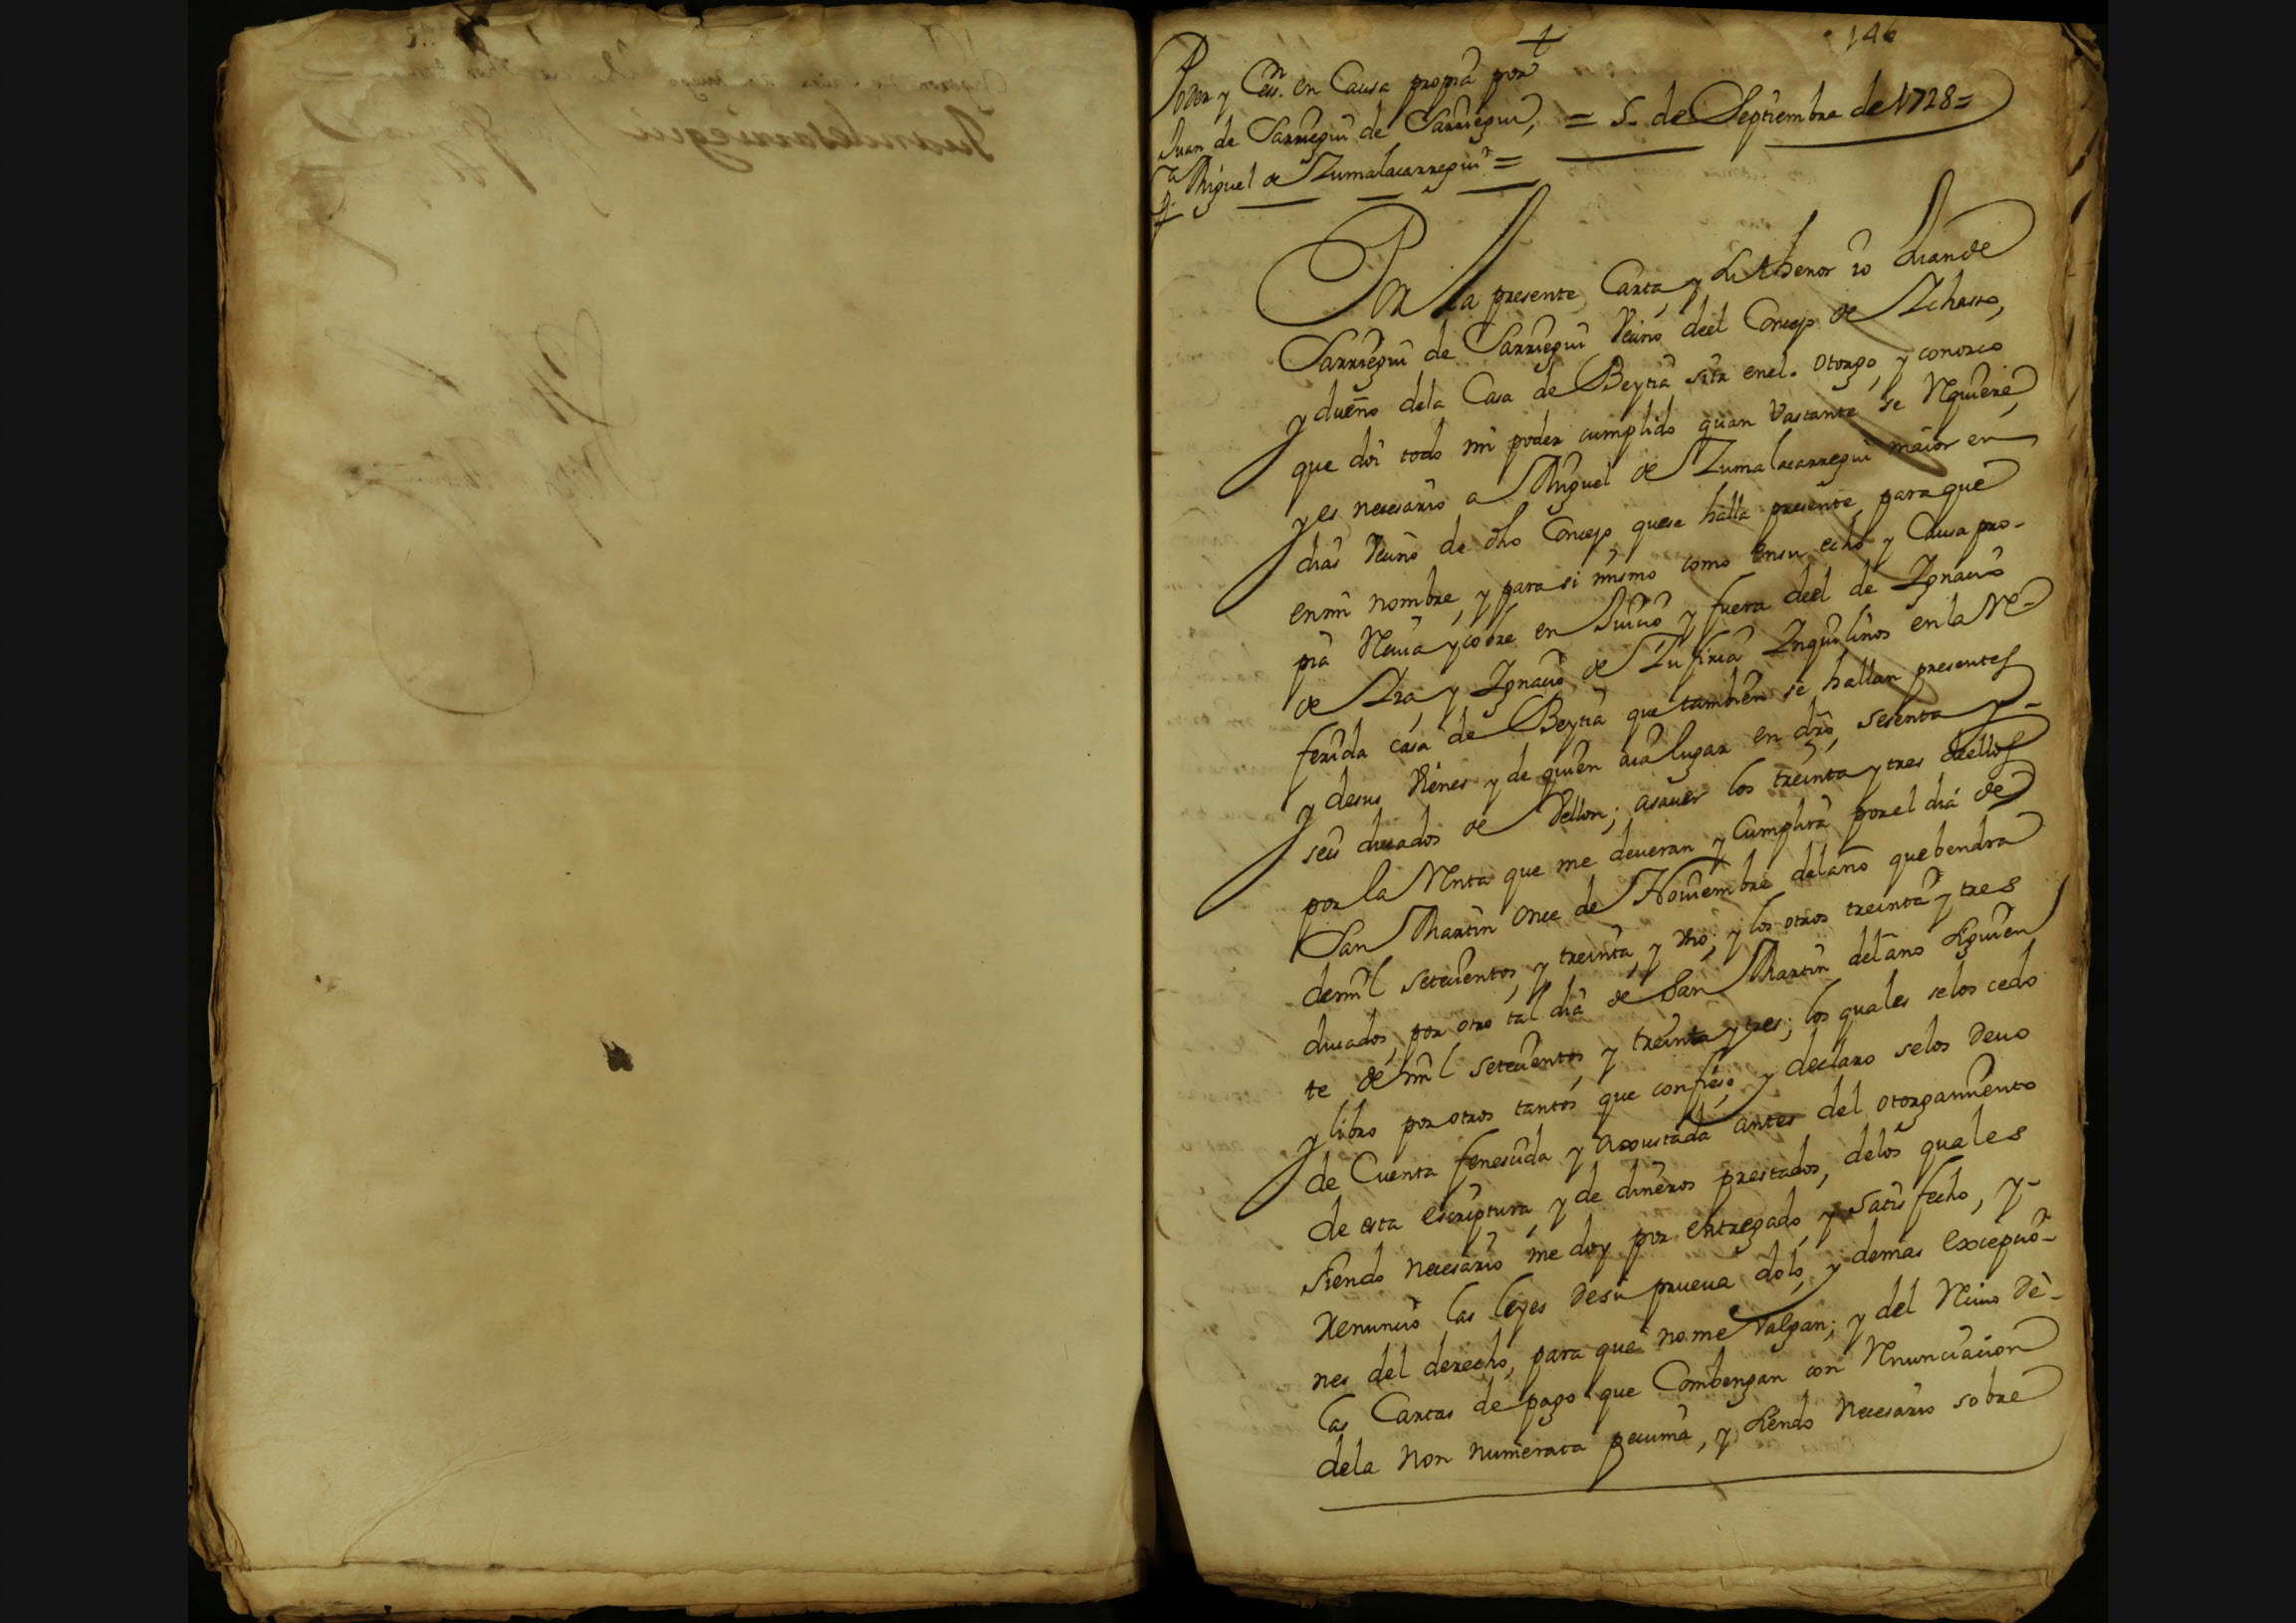 146
Poder y Cesn. en Causa propia por
Juan de Sarriegui de Sarriegui,
a Miguel de Zumalacarregui =
= 5. de Septiembre de 1728 =
Por la presente Carta, y su thenor io Juan de
Sarriegui de Sarriegui Vecino deel Concejo de
y dueño dela Casa de Beytia sita enel. otorgo, y conozco
que doi todo mi poder cumplido quan Vastante se Requiere,
y es necesario a Miguel de Zumalacarregui maior en
dias Vecino de dho Concejo que se halla presente, para que
en mi nombre, y para si mismo como en su echo y Causa pro-
pia Reciva y cobre en Juicio y fuera deel de Ignacio
de y Ignacio de Inquilinos en la Re-
ferida casa de Beytia que tambien se hallan presentes
y desus Vienes y de quien aia lugar en dro, sesenta y-
seis ducados de Vellon; asauer los treinta y tres deellos
por la Renta que me deueran y Cumplira por el dia de
San Martin Once de Nouiembre del año que bendra
de mil setecientos, y treinta, y dos; y los otros treinta y tres
ducados, por otro tal dia de San Martin del año siguien
te de mil setecientos, y treinta y tres; los quales se los cedo
y libro por otros tantos que confieso, y declaro selos deuo
de Cuenta fenescida y Axoustada antes del otorgamiento
de esta escriptura, y de dineros prestados, delos quales
siendo necesario me doy por entregado, y satisfecho, y-
Renuncio las leyes desu prueua dolo, y demas excepcio-
nes del derecho, para que no me Valgan; y del Reciuo dè-
las Cartas de pago que Combengan con Renunciacion
dela non numerata pecunia, y siendo necesario sobre